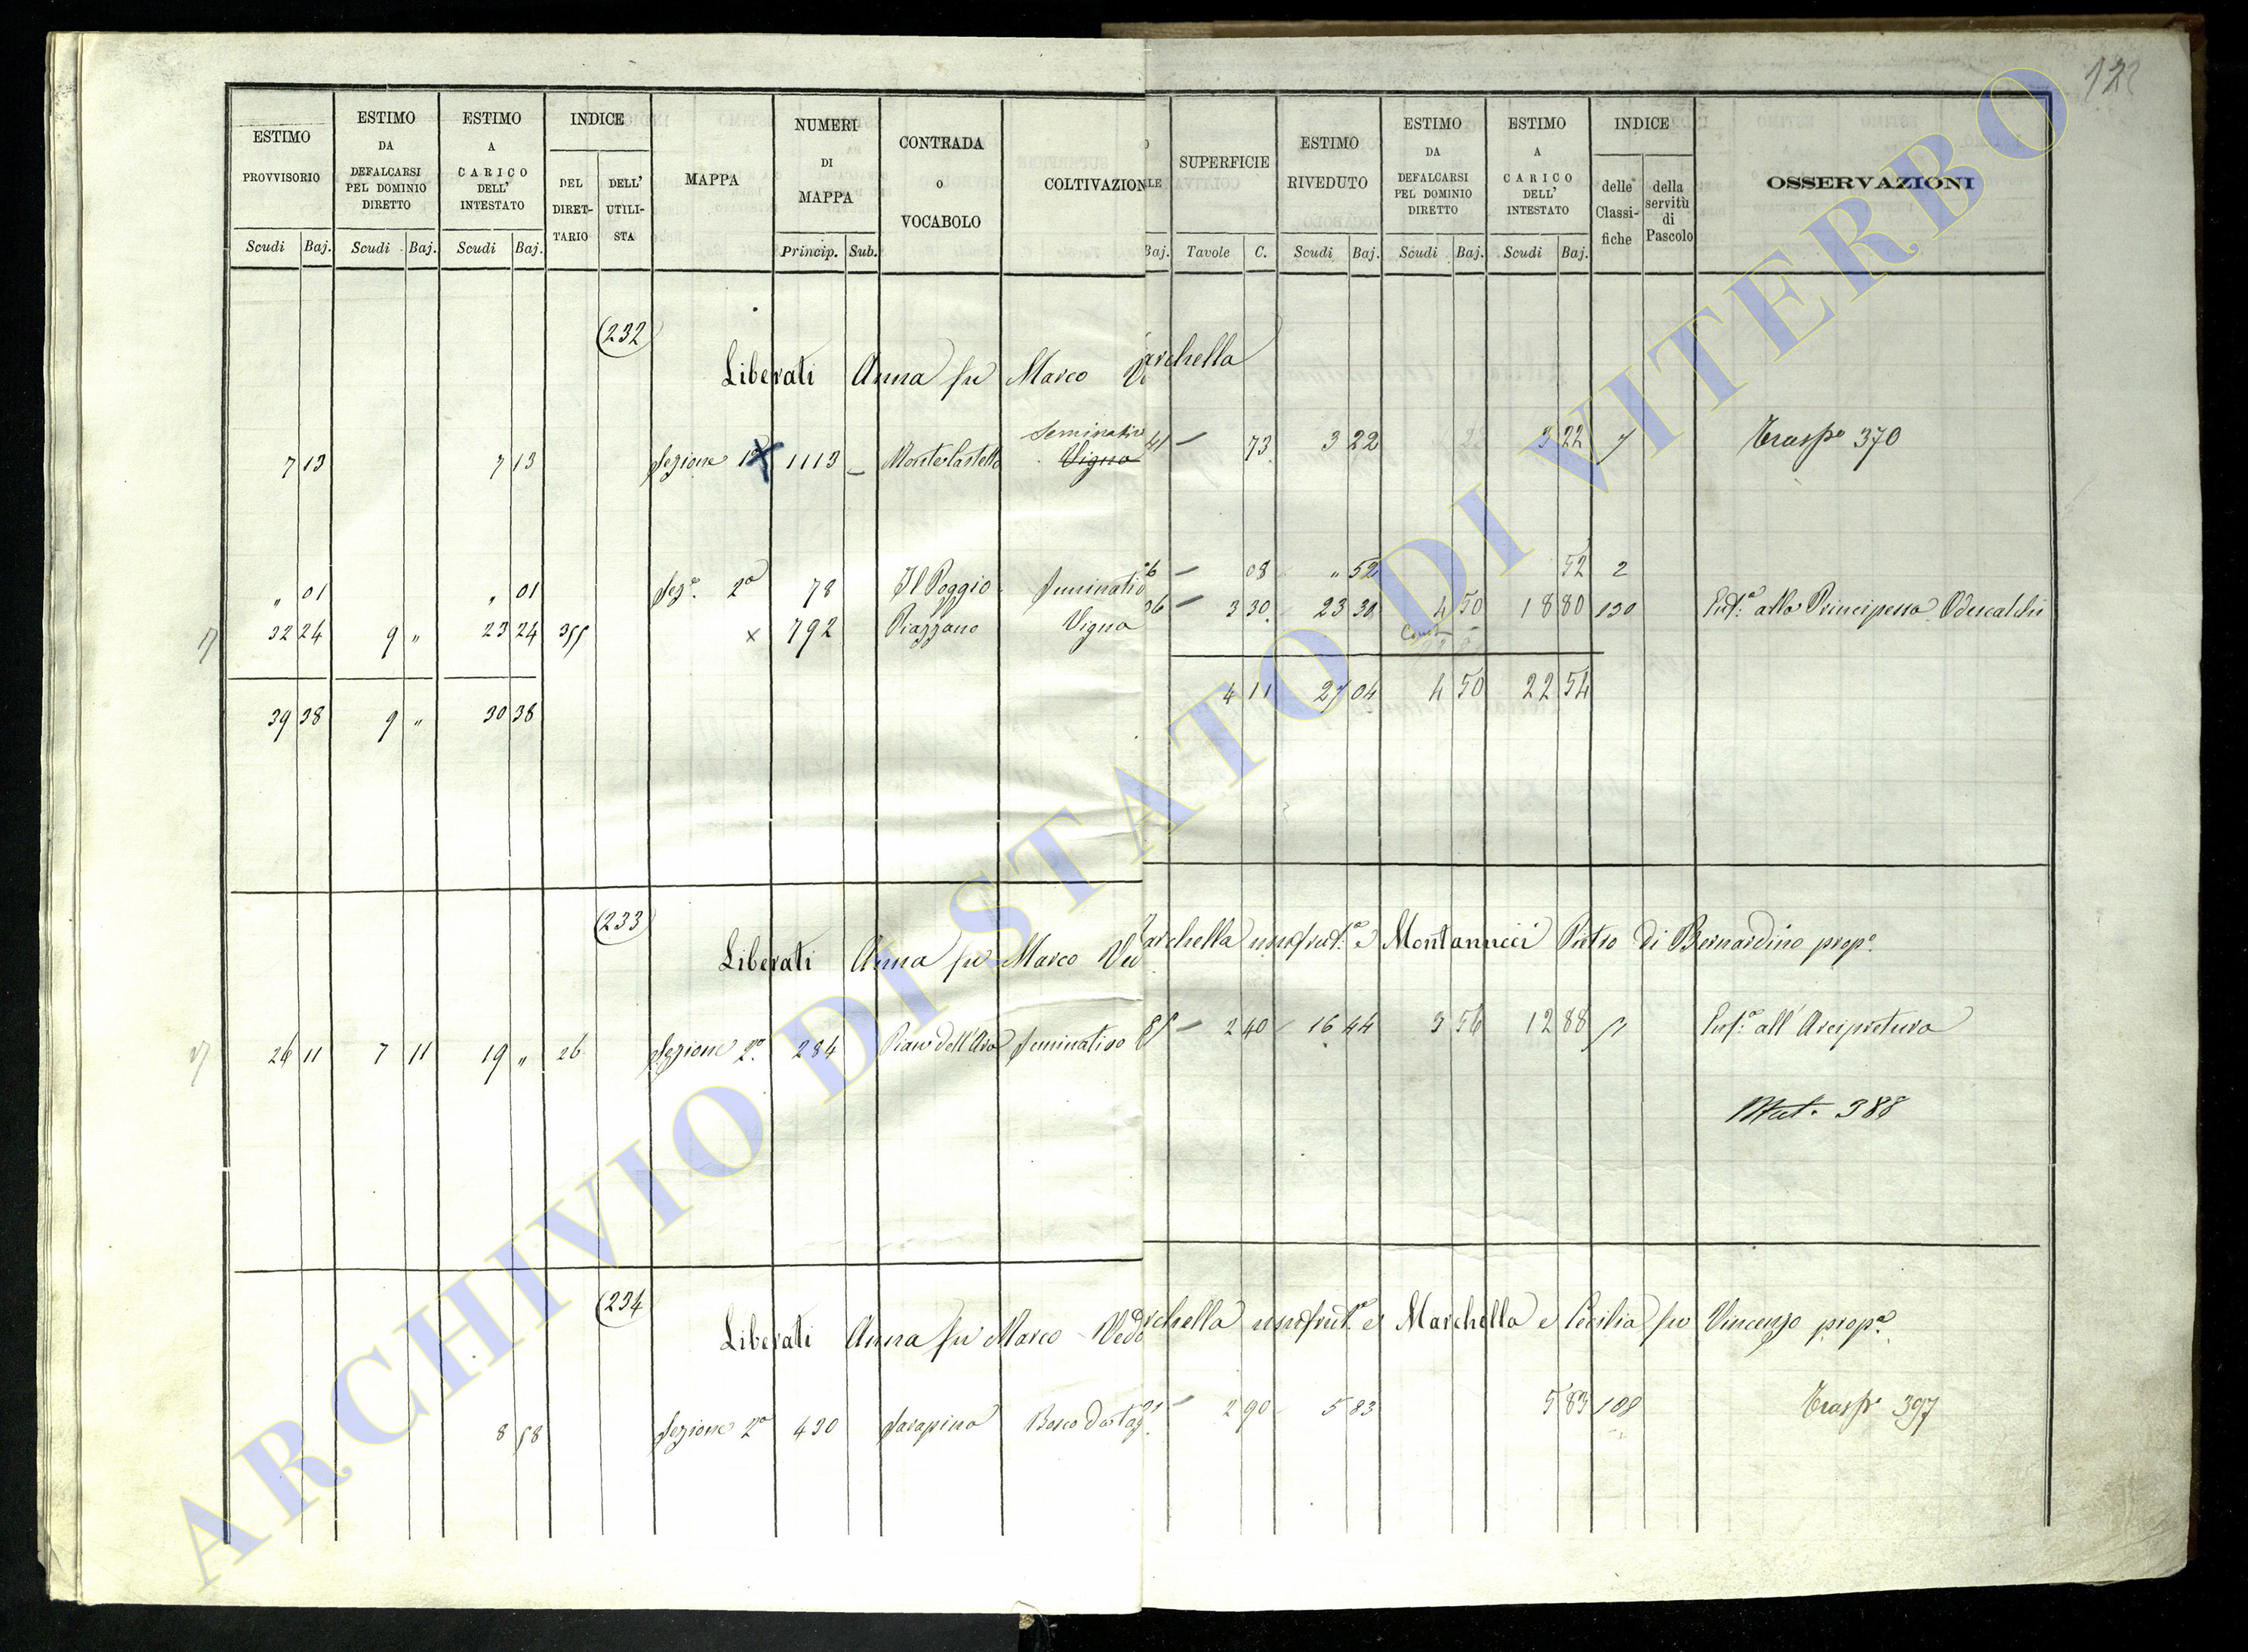 122
ESTIMO PROVVISORIO Scudi Baj.
ESTIMO DA DEFALCARSI PEL DOMINIO DIRETTO Scudi Baj.
ESTIMO A CARICO DELL' INTESTATO Scudi Baj.
INDICE DEL DIRET- TARIO DELL' UTILI- STA
MAPPA
NUMERI DI MAPPA Princip. Sub.
CONTRADA O VOCABOLO
COLTIVAZION
LE Baj.
SUPERFICIE Tavole C.
ESTIMO RIVEDUTO Scudi Baj.
ESTIMO DA DEFALCARSI PEL DOMINIO DIRETTO Scudi Baj.
ESTIMO A CARICO DELL' INTESTATO Scudi Baj.
INDICE delle Classi- fiche della servitù di Pascolo
OSSERVAZIONI
232
Liberati Anna fu Marco V archella
Seminativo
7 13 7 13 Sezione 1ª 1113 Monte Castello Vigna 41 73 3 22 3 22 7 Trasp.º 370
" 01 " 01 Sez.e 2ª 78 Il Poggio Seminativo 08 " 52 52 2
32 24 9 " 23 24 355 x 792 Piazzano Vigna 06 3 30 23 30 4 50 18 80 130 Enf.a alla Principessa Odescalchi
39 38 9 " 30 38 4 11 27 04 4 50 22 54
233
Liberati Anna fu Marco Ved archella usufrut.a e Montanucci Pietro di Bernardino prop.o
26 11 7 11 19 " 26 Sezione 2ª 284 Piano dell'Ara Seminativo 2 40 16 44 3 56 12 88 Enf.a all' Arcipretura
Mat. 388
234
Liberati Anna fu Marco Ved archella usufrut.a e Marchella e Cecilia fu Vincenzo prop.a
8 58 Sezione 2ª 430 Sarapina Bosco da tag 2 90 5 83 5 83 108 Trasp.º 397
ARCHIVIO DI STATO DI VITERBO